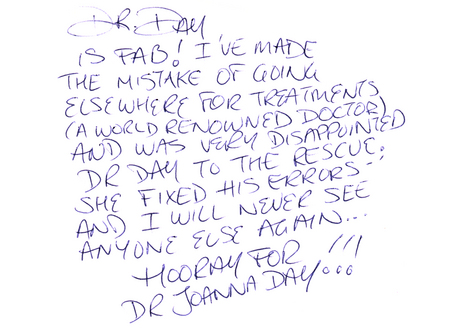 DR. DAY
IS FAB! I'VE MADE
THE MISTAKE OF GOING
ELSEWHERE FOR TREATMENTS
(A WORLD RENOWNED DOCTOR)
AND WAS VERY DISAPPOINTED
DR DAY TO THE RESCUE;
SHE FIXED HIS ERRORS -
AND I WILL NEVER SEE
ANYONE ELSE AGAIN...
HOORAY FOR !!!
DR JOANNA DAY...